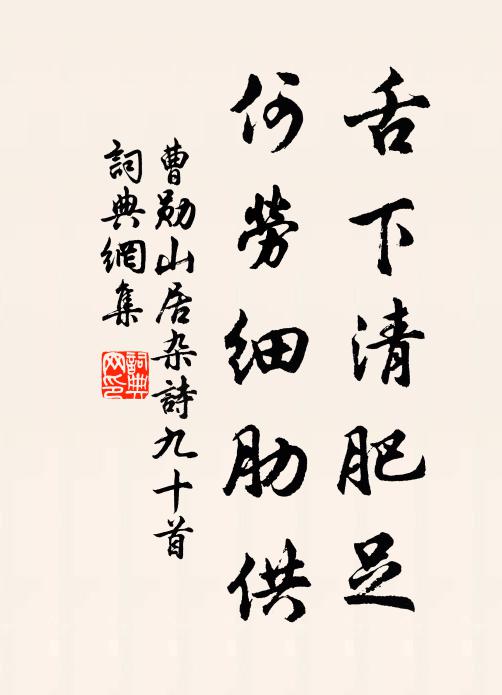 舌下清肥足
何勞細肋供
曹勛山居杂詩九十首
詞典網集
詞典网印